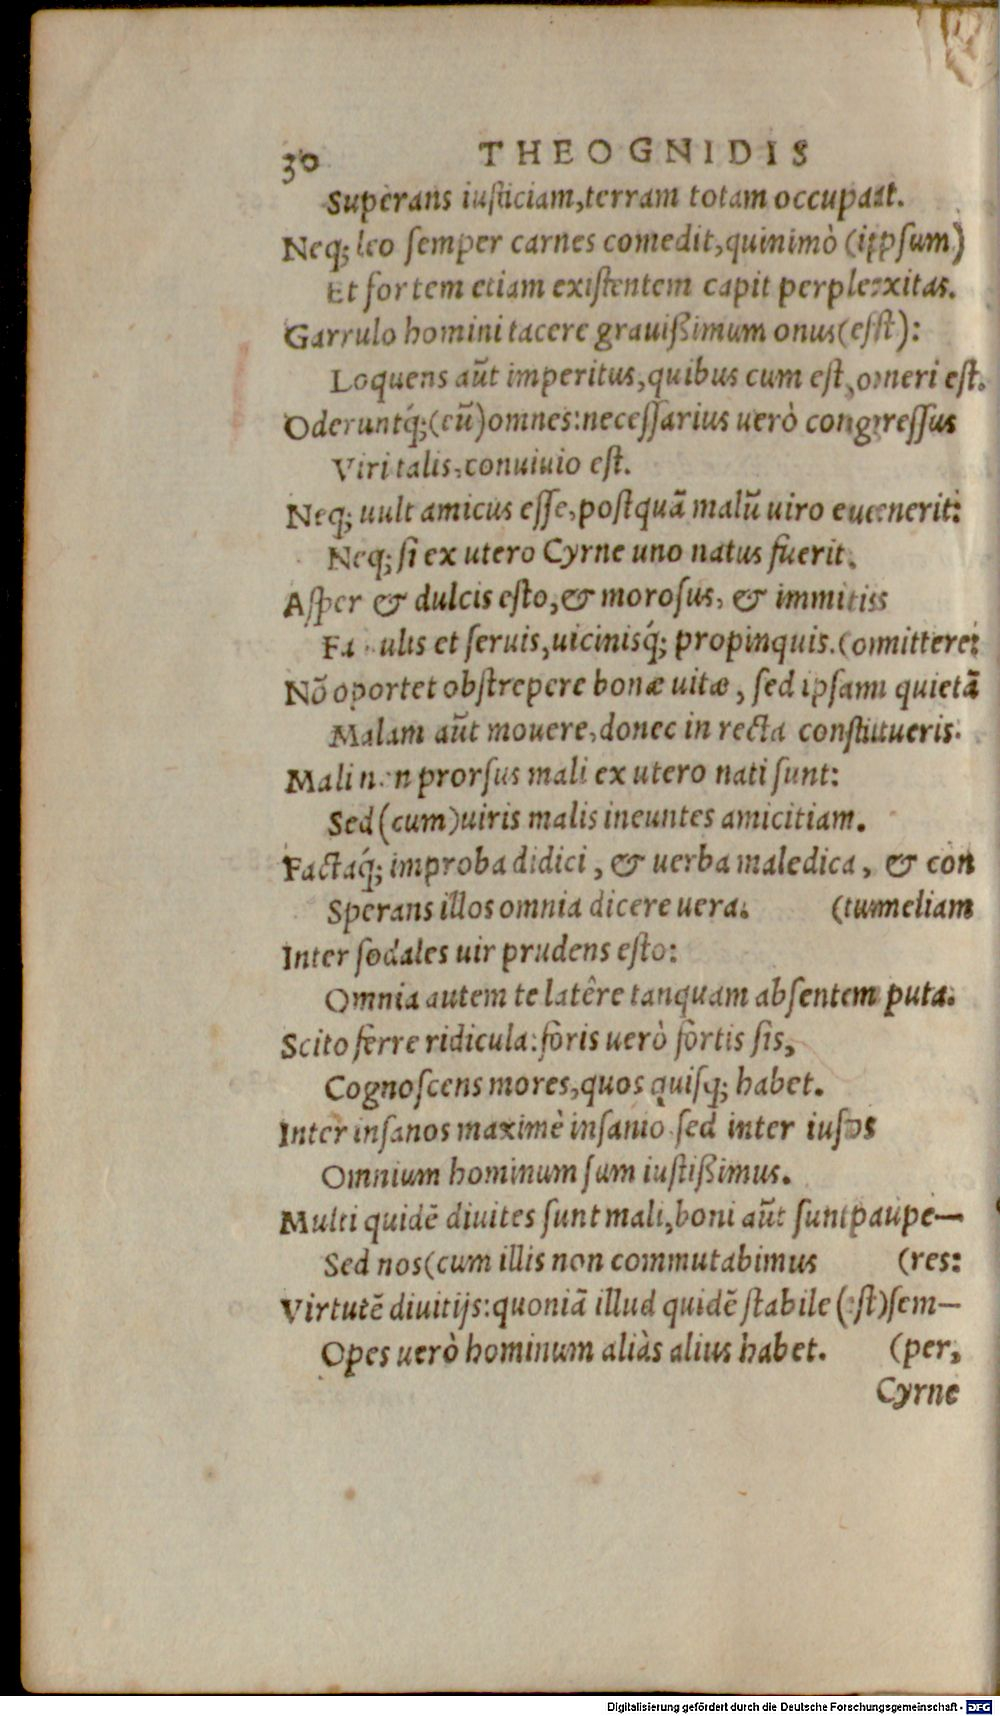 30 THEOGNIDIS
Superans iusticiam,terram totam occupat.
Neq; leo semper carnes comedit,quinimò (ipsum)
Et fortem etiam existentem capit perplexitas.
Garrulo homini tacere grauißimum onus(est):
Loquens aũt imperitus,quibus cum est,oneri est.
Oderuntq́;(eũ)omnes:necessarius uerò congressus
Viri talis,conuiuio est.
Neq; uult amicus esse,postquã malũ uiro euenerit:
Neq; si ex utero Cyrne uno natus fuerit.
Asper & dulcis esto,& morosus, & immitis
ulis et seruis,uicinisq́; propinquis.(omittere:
Nõ oportet obstrepere bonæ uitæ, sed ipsam quietã
Malam aũt mouere,donec in recta constitueris.
Mali non prorsus mali ex utero nati sunt:
Sed(cum)uiris malis ineuntes amicitiam.
Factaq́; improba didici, & uerba maledica, & con
Sperans illos omnia dicere uera. (tumeliam
Inter sodales uir prudens esto:
Omnia autem te latêre tanquam absentem puta.
Scito ferre ridicula:foris uerò fortis sis,
Cognoscens mores,quos quisq; habet.
Inter insanos maximè insanio sed inter iustos
Omnium hominum sum iustißimus.
Multi quidẽ diuites sunt mali,boni aũt sunt paupe—
Sed nos(cum illis non commutabimus (res:
Virtutẽ diuitijs:quoniã illud quidẽ stabile (est)sem—
Opes uerò hominum aliàs alius habet. (per,
Cyrne
Digitalisierung gefördert durch die Deutsche Forschungsgemeinschaft - DFG